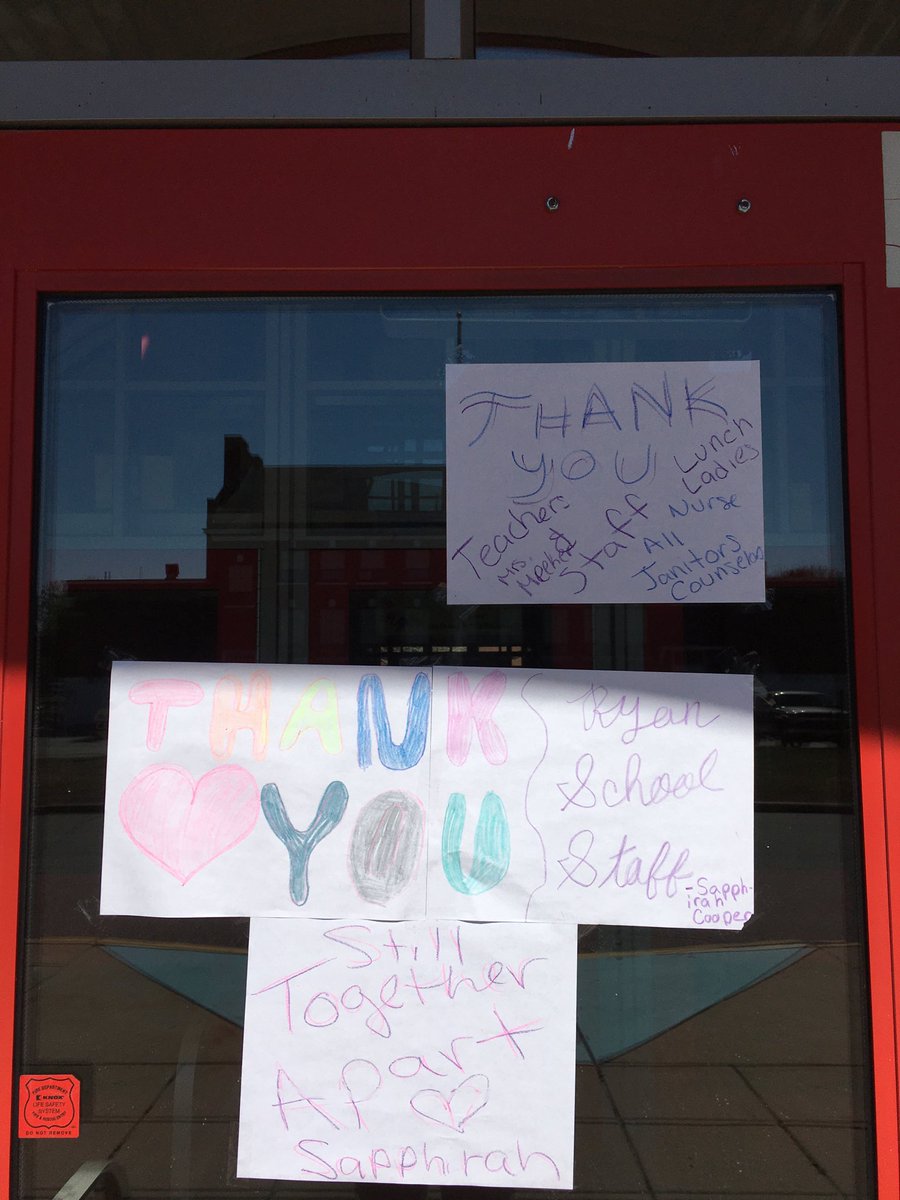 THANK
YOU
Lunch
Ladies
Teachers
Mrs.
Staff
All Nurse
Janitors
Counselor
THANK
YOU
Ryan
School
Staff
-Sapph-
irah
Cooper
Still
Together
Apart
Sapphirah
FIRE DEPARTMENT
KNOX
LIFE SAFETY
SYSTEM
DO NOT REMOVE